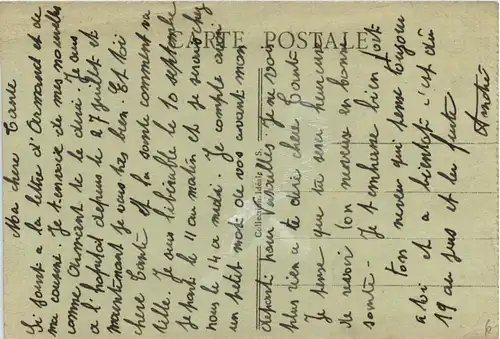 CARTE POSTALE
Collection Idéale P. S.
Ma chere Tante
Si joint a la lettre d'Armand et de
ma cousine. Je t'envoie de mes nouvelles
comme Armand te le dirai Je suis
a l'hopital depuis le 27 juillet et
maintenant je vais tres bien. Et toi
chere Tante et la santé comment va
telle. Je suis libérable le 10 septembre
je parti le 11 au matin et je serais chez
nous le 14 a midi. Je compte avoir
un petit mot de vos avant mon
départ pour Versailles Je ne vois
plus rien a te dire chere Tante
Je pense que tu sera heureuse
de revoir ton neveux en bonne
santé - Je t'embrasse bien fort
ton neveu qui pense toujour
a toi et a bientot c'est dû
19 au jus et la fuite
André